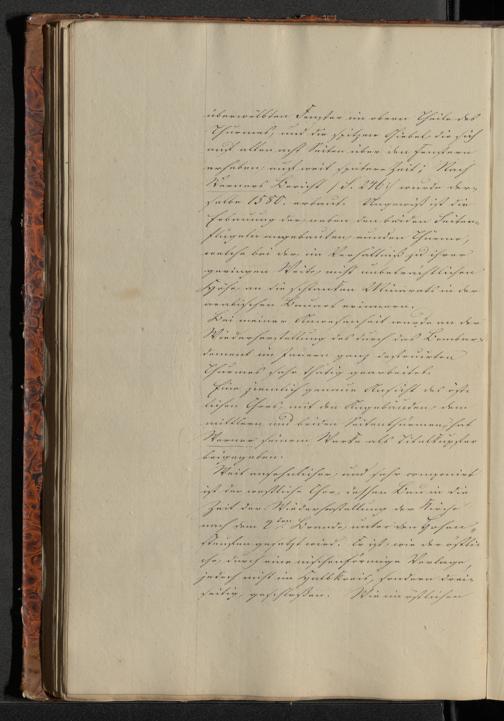 überwölbten Fenster im obern Theile des
Thurmes, und die spitzen Giebel die sich
auf allen acht Seiten über den Fenstern
erheben, auf weit spätere Zeit; Nach
Werners Bericht (S. 276) wurde der-
selbe 1580 erbaut. Ungewiß ist die
Erbauung der neben den beiden Seiten-
flügeln angebauten runden Thürme,
welche bei der, im Verhältniß zu ihrer
geringen Weite, nicht unbeträchtlichen
Höhe an die schlanken Minarets in der
arabischen Bauart erinnern.
Bei meiner Anwesenheit wurde an der
Wiederherstellung des durch das Bombar-
dement im Innern ganz destruirten
Thurmes sehr thätig gearbeitet.
Eine ziemlich genaue Ansicht des öst-
lichen Chors, mit den Angebäuden, dem
mittlern und beiden Seitenthürmen, hat
Werner seinem Werke als Titelkupfer
beigegeben.
Weit ansehnlicher und sehr componirt
ist der westliche Chor, dessen Bau in die
Zeit der Wiederherstellung der Kirche
nach dem Brande, unter den Hohen-
staufen gesetzt wird. Er ist, wie der östli-
che, durch eine nischenförmige Vorlage,
jedoch nicht im Halbkreis, sondern drei-
seitig, geschloßen. Wie im östlichen